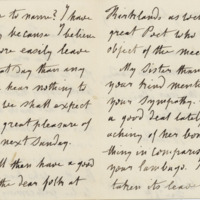 to name? I have
y because I believe
ore easily leave
at day than any
hear nothing to
we shall expect
great pleasure of
next Sunday.
ll there have a good
the dear folk at
as wer
great Poet who
object of the mee
My Sister than
your kind menti
your Sympathy.
a good deal latel
aching of her bon
thing in compares
your lumbago.
taken its leave